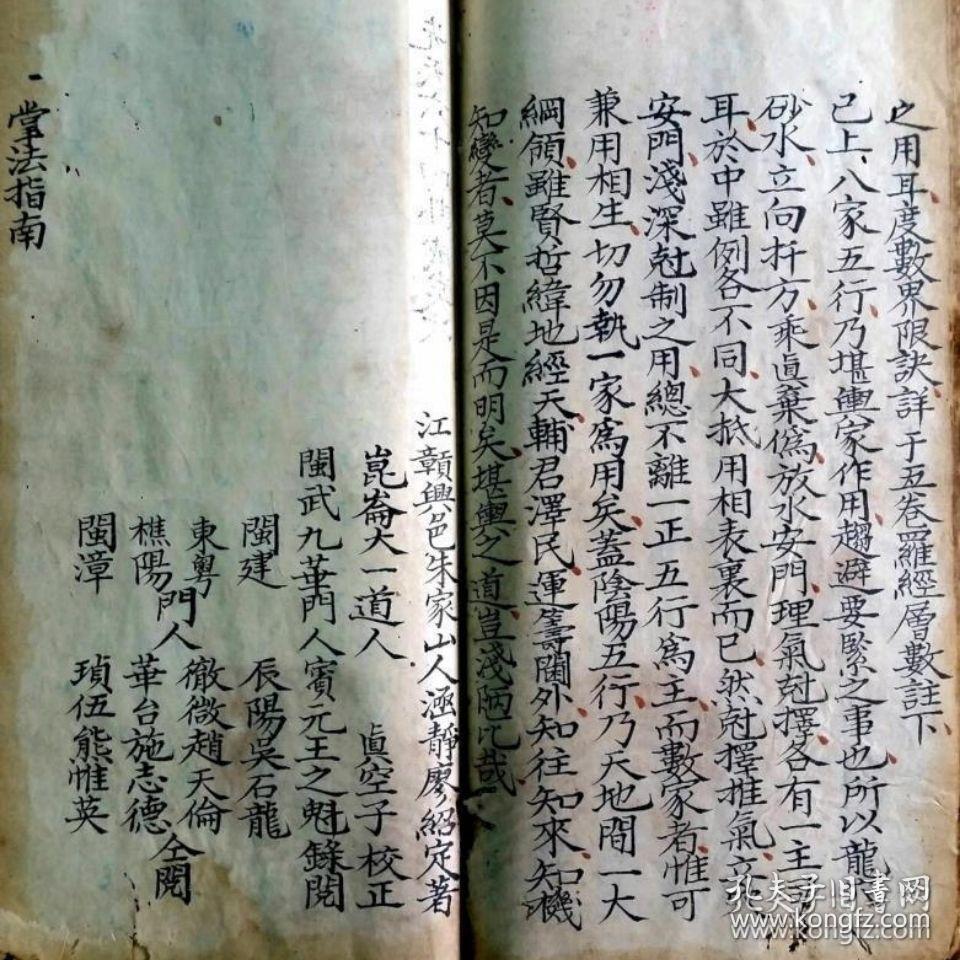 之用耳度數界限訣詳于五卷羅經層數註下
已上八家五行乃堪輿家作用趨避要緊之事也所以龍
砂水立向扦方乘真棄偽放水安門理氣尅擇各有一主
耳於中雖例各不同大抵用相表裏而已然尅擇推氣立
安門淺深尅制之用總不離一正五行為主而數家者惟可
兼用相生切勿執一家為用矣蓋陰陽五行乃天地間一大
綱領雖賢哲緯地經天輔君澤民運籌閫外知往知來知機
知變者莫不因是而明矣堪輿之道豈淺陋比哉
江贛興邑朱家山人涵靜廖紹定著
崑崙大一道人 真空子校正
閩武九華門人賓元王之魁錄閱
閩建 辰陽吳石龍
東粵 徹微趙天倫
樵陽門人 華台施志德 仝閱
閩漳 瑣伍熊惟英
一掌法指南
孔夫子旧書网
www.kongfz.com